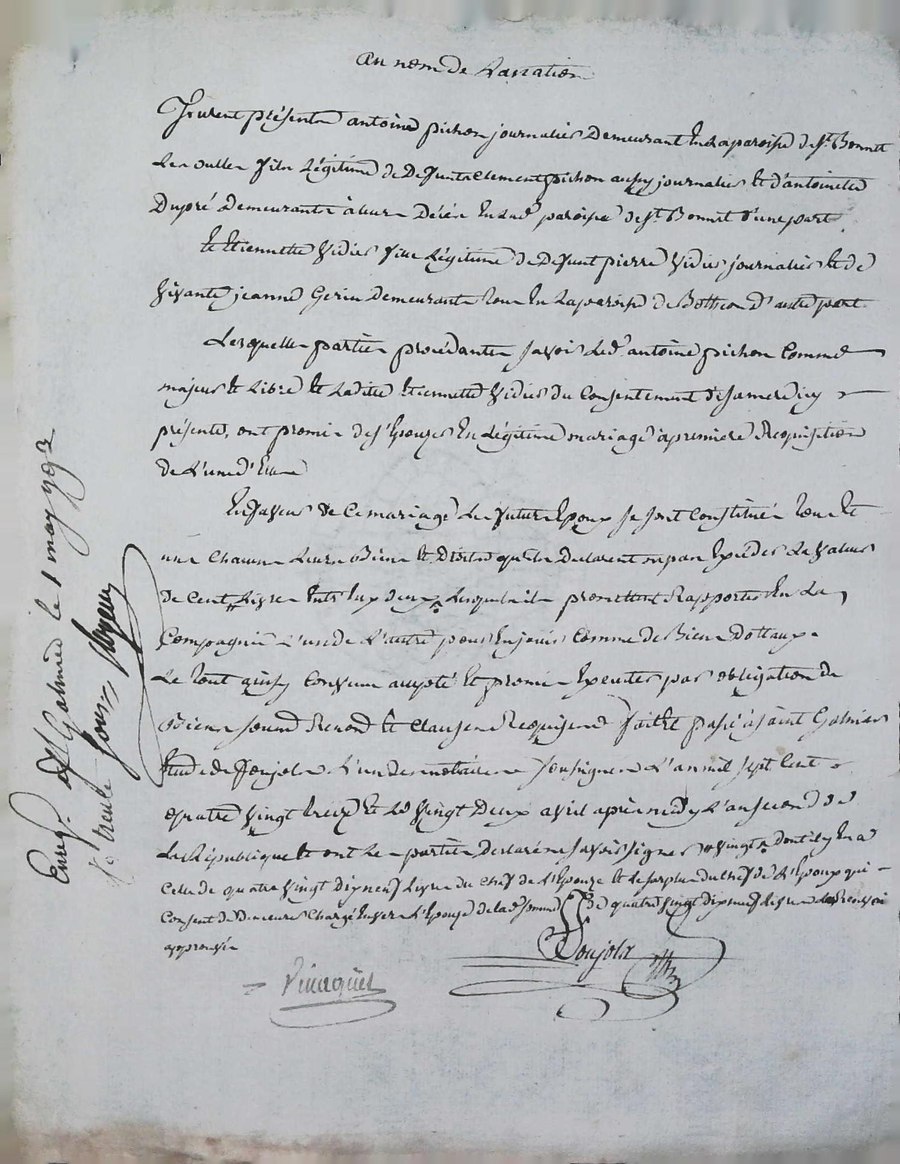 au nom de La nation
furent présents antoine pichon journalier Demeurant En La paroisse de St Bonnet
Les oulles fils Légitime de Defunt Clement pichon aussy journalier et d'antoinette
Dupré Demeurante paroisse de St Bonnet d'une part
Et Etiennette Vidier fille Légitime de Defunt pierre Vidier journalier et de
Vivante jeanne Gerin Demeurants tous En La paroisse de Bothéon d'autre part
Lesquelles parties procédantes savoir Led. antoine pichon Comme
majeur et Libre et Laditte Etiennette Vidier du Consentement de sa mere icy
présente, ont promis de s'Epouser En Légitime mariage à premiere Requisition
de L'un d'Eux
En faveur de Ce mariage Les futurs Epoux se sont Constitués tous Et
un Chacun Leurs Biens et Droits qu'ils Declarent ne pas Exceder La Valeur
de Cent Livres Entre Eux deux Lesquels ils promettent Rapporter En La
Compagnie L'un de L'autre pour En jouir Comme de Biens dottaux.
Le tout ainsy Convenu accepté et promis Executer par obligation de
Biens soumis Renonc et Clauses Requises fait et passé à saint Galmier
Etude de Joujols L'un des notaires soussignés L'an mil sept Cent
quatre vingt treize et Le Vingt Deux avril après midy L'an second de
La République et ont Les parties Declaré ne savoir signer vingt dont il y En a
Celle de quatre Vingt dix neuf Livres du Chef de L'Epouze et Le surplus du Chef de L'Epoux qui
Consent de Demeurer Chargé Envers L'Epouze de lad. somme de quatre Vingt dix neuf Livres
approuvé
Joujols
Enreg. à St Galmier le 1 may 1793